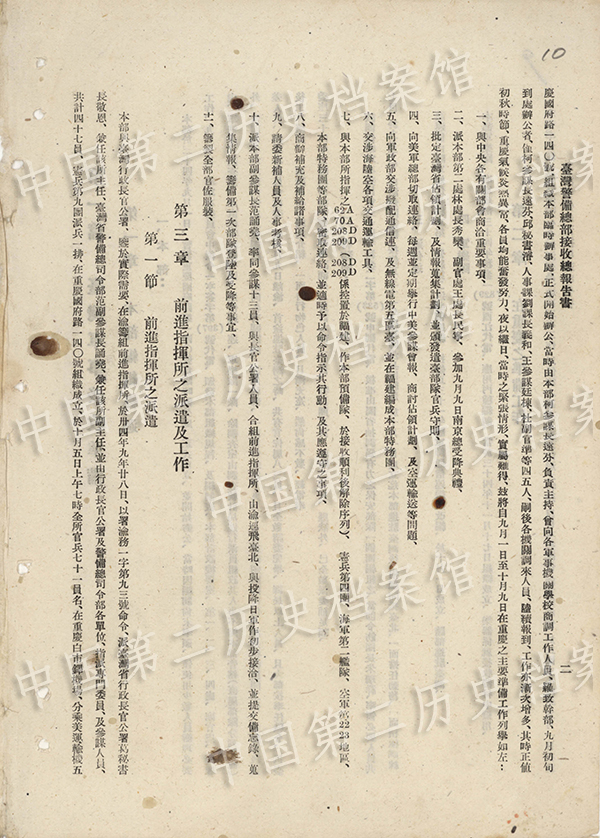 10
臺灣警備總部接收總報告書
二
慶國府路一四〇號組織本部臨時辦事處、正式開始辦公、當時由本部柯參謀長遠芬、負責主持、曾向各軍事機關學校商調工作人員、羅致幹部、九月初旬
到處辦公者、僅柯參謀長遠芬、邱秘書滄、人事課劉課長義和、王參謀廷棟、杜副官準等四五人、嗣後各機關調來人員、陸續報到、工作亦漸次增多、其時正值
初秋時節、重慶氣候炎熱異常、各員均能奮發努力、夜以繼日、當時之緊張情形、實屬難得、茲將自九月一日至十月九日在重慶之主要準備工作列舉如左：
一、與中央各有關部會商洽重要事項、
二、派本部第二處林處長秀欒、副官處王處長民寧、參加九月九日南京總受降典禮、
三、批定臺灣省佔領計劃、及情報蒐集計劃、並頒發進臺部隊官兵守則、
四、向美軍總部切取連絡、每週並定期舉行中美參謀會報、商討佔領計劃、及空運輸送等問題、
五、向軍政部交涉撥配通信連、及無線電第五區臺、並在福建編成本部特務團、
六、交涉海陸空各項交通運輸工具、
七、與本部所指揮之62A 70A 208D 209D（208D 209D係控置於福建、作本部預備隊、於接收順利後解除序列）、憲兵第四團、海軍第二艦隊、空軍第22 23地區、
本部特務團等部隊、密取連絡、並適時予以命令指示其行動、及其應遵守之事項、
八、商辦補充及補給諸事項、
九、請委新補人員及人事考核、
十、派本部副參謀長范誦堯、率同參謀十三員、與長官公署人員、合組前進指揮所、由渝逕飛臺北、與投降日軍作初步接洽、並提交備忘錄、蒐
集情報、籌備第一次部隊登陸及受降等事宜、
十一、籌製全部官佐服裝、
第三章　前進指揮所之派遣及工作
第一節　前進指揮所之派遣
本部與臺灣行政長官公署、鑒於實際需要、在渝籌組前進指揮所、於卅四年九年廿八日、以署渝務一字第九三號命令、派臺灣省行政長官公署葛秘書
長敬恩、兼任該所主任、臺灣省警備總司令部范副參謀長誦堯、兼任該所副主任、並由行政長官公署及警備總司令部各單位、指派專門委員、及參謀人員、
共計四十七員、憲兵第九團派兵一排、在重慶國府路一四〇號組織成立、於十月五日上午七時全所官兵七十一員名、在重慶白市驛機場、分乘美運輸機五
中国第二历史档案馆
中国第二历史档案馆
中国第二历史档案馆
中国第二历史档案馆